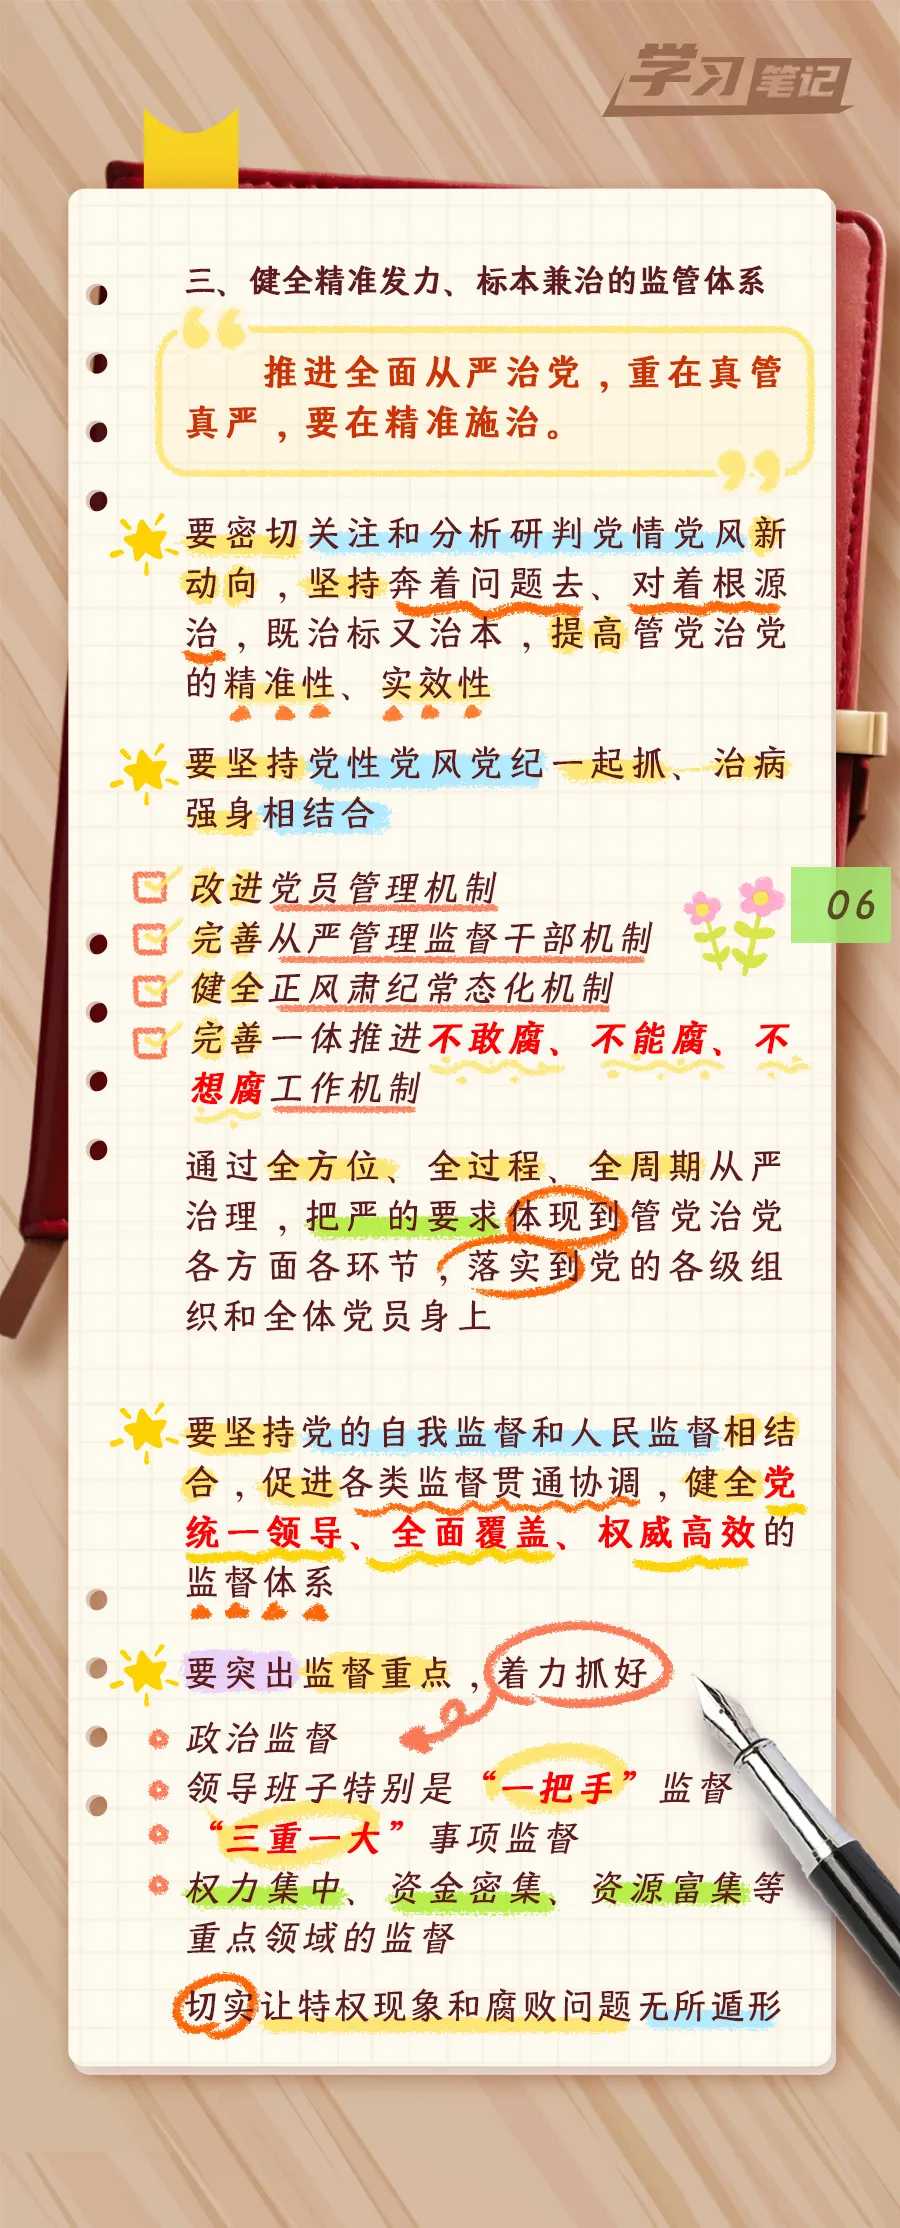 学习笔记
三、健全精准发力、标本兼治的监管体系
“
推进全面从严治党，重在真管
真严，要在精准施治。
”
要密切关注和分析研判党情党风新
动向，坚持奔着问题去、对着根源
治，既治标又治本，提高管党治党
的精准性、实效性
要坚持党性党风党纪一起抓、治病
强身相结合
改进党员管理机制
06
完善从严管理监督干部机制
健全正风肃纪常态化机制
完善一体推进不敢腐、不能腐、不
想腐工作机制
通过全方位、全过程、全周期从严
治理，把严的要求体现到管党治党
各方面各环节，落实到党的各级组
织和全体党员身上
要坚持党的自我监督和人民监督相结
合，促进各类监督贯通协调，健全党
统一领导、全面覆盖、权威高效的
监督体系
要突出监督重点，着力抓好
政治监督
领导班子特别是“一把手”监督
“三重一大”事项监督
权力集中、资金密集、资源富集等
重点领域的监督
切实让特权现象和腐败问题无所遁形